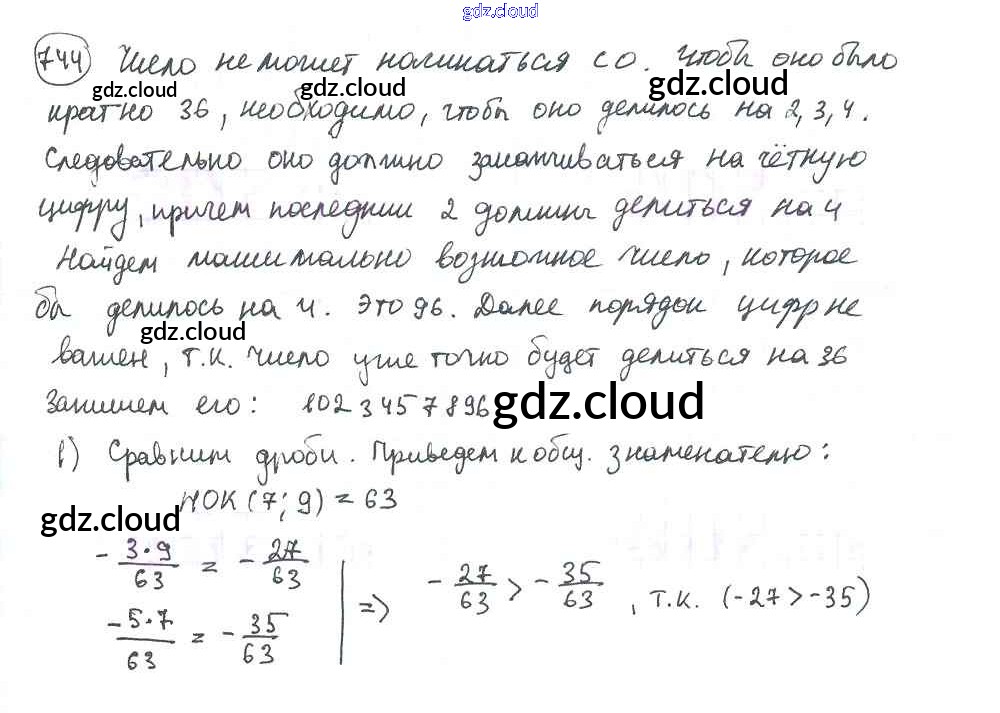 gdz.cloud
744 Число не может начинаться с 0. Чтобы оно было
gdz.cloud gdz.cloud gdz.cloud
кратно 36, необходимо, чтобы оно делилось на 2, 3, 4.
Следовательно оно должно заканчиваться на чётную
цифру, причем последнии 2 должны делиться на 4
Найдем машимально возможное число, которое
бы делилось на 4. Это 96. Далее порядок цифр не
gdz.cloud
важен, т.к. число уже точно будет делиться на 36
gdz.cloud
Запишем его: 1023457896
gdz.cloud
1) Сравним дроби. Приведем к общ. знаменателю:
НОК (7; 9) = 63
gdz.cloud
- 3·9/63 = - 27/63 | => - 27/63 > - 35/63, т.к. (-27 > -35)
-5·7/63 = - 35/63
gdz.cloud